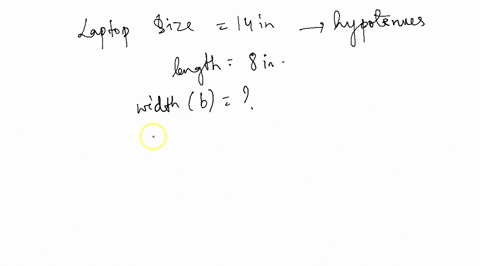 Laptop Size = 14 in → hypotenues
length = 8 in.
width (b) = ?